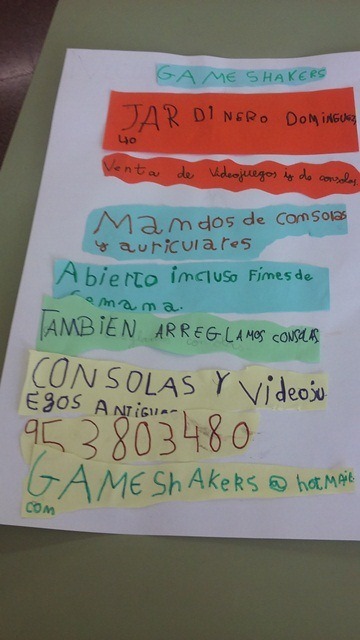 GAME SHAKERS
JARDINERO DOMINGUEZ
40
Venta de Videojuegos y de consolas
Mamdos de comsolas
y auriculares
Abierto imcluso Fimesde
Semama.
TAMBIEN ARREGLAMOS CONSOLAS
CONSOLAS Y Videoju
EGOS ANTIGUOS
953803480
GAMEShAKERS@hotMAil.
com